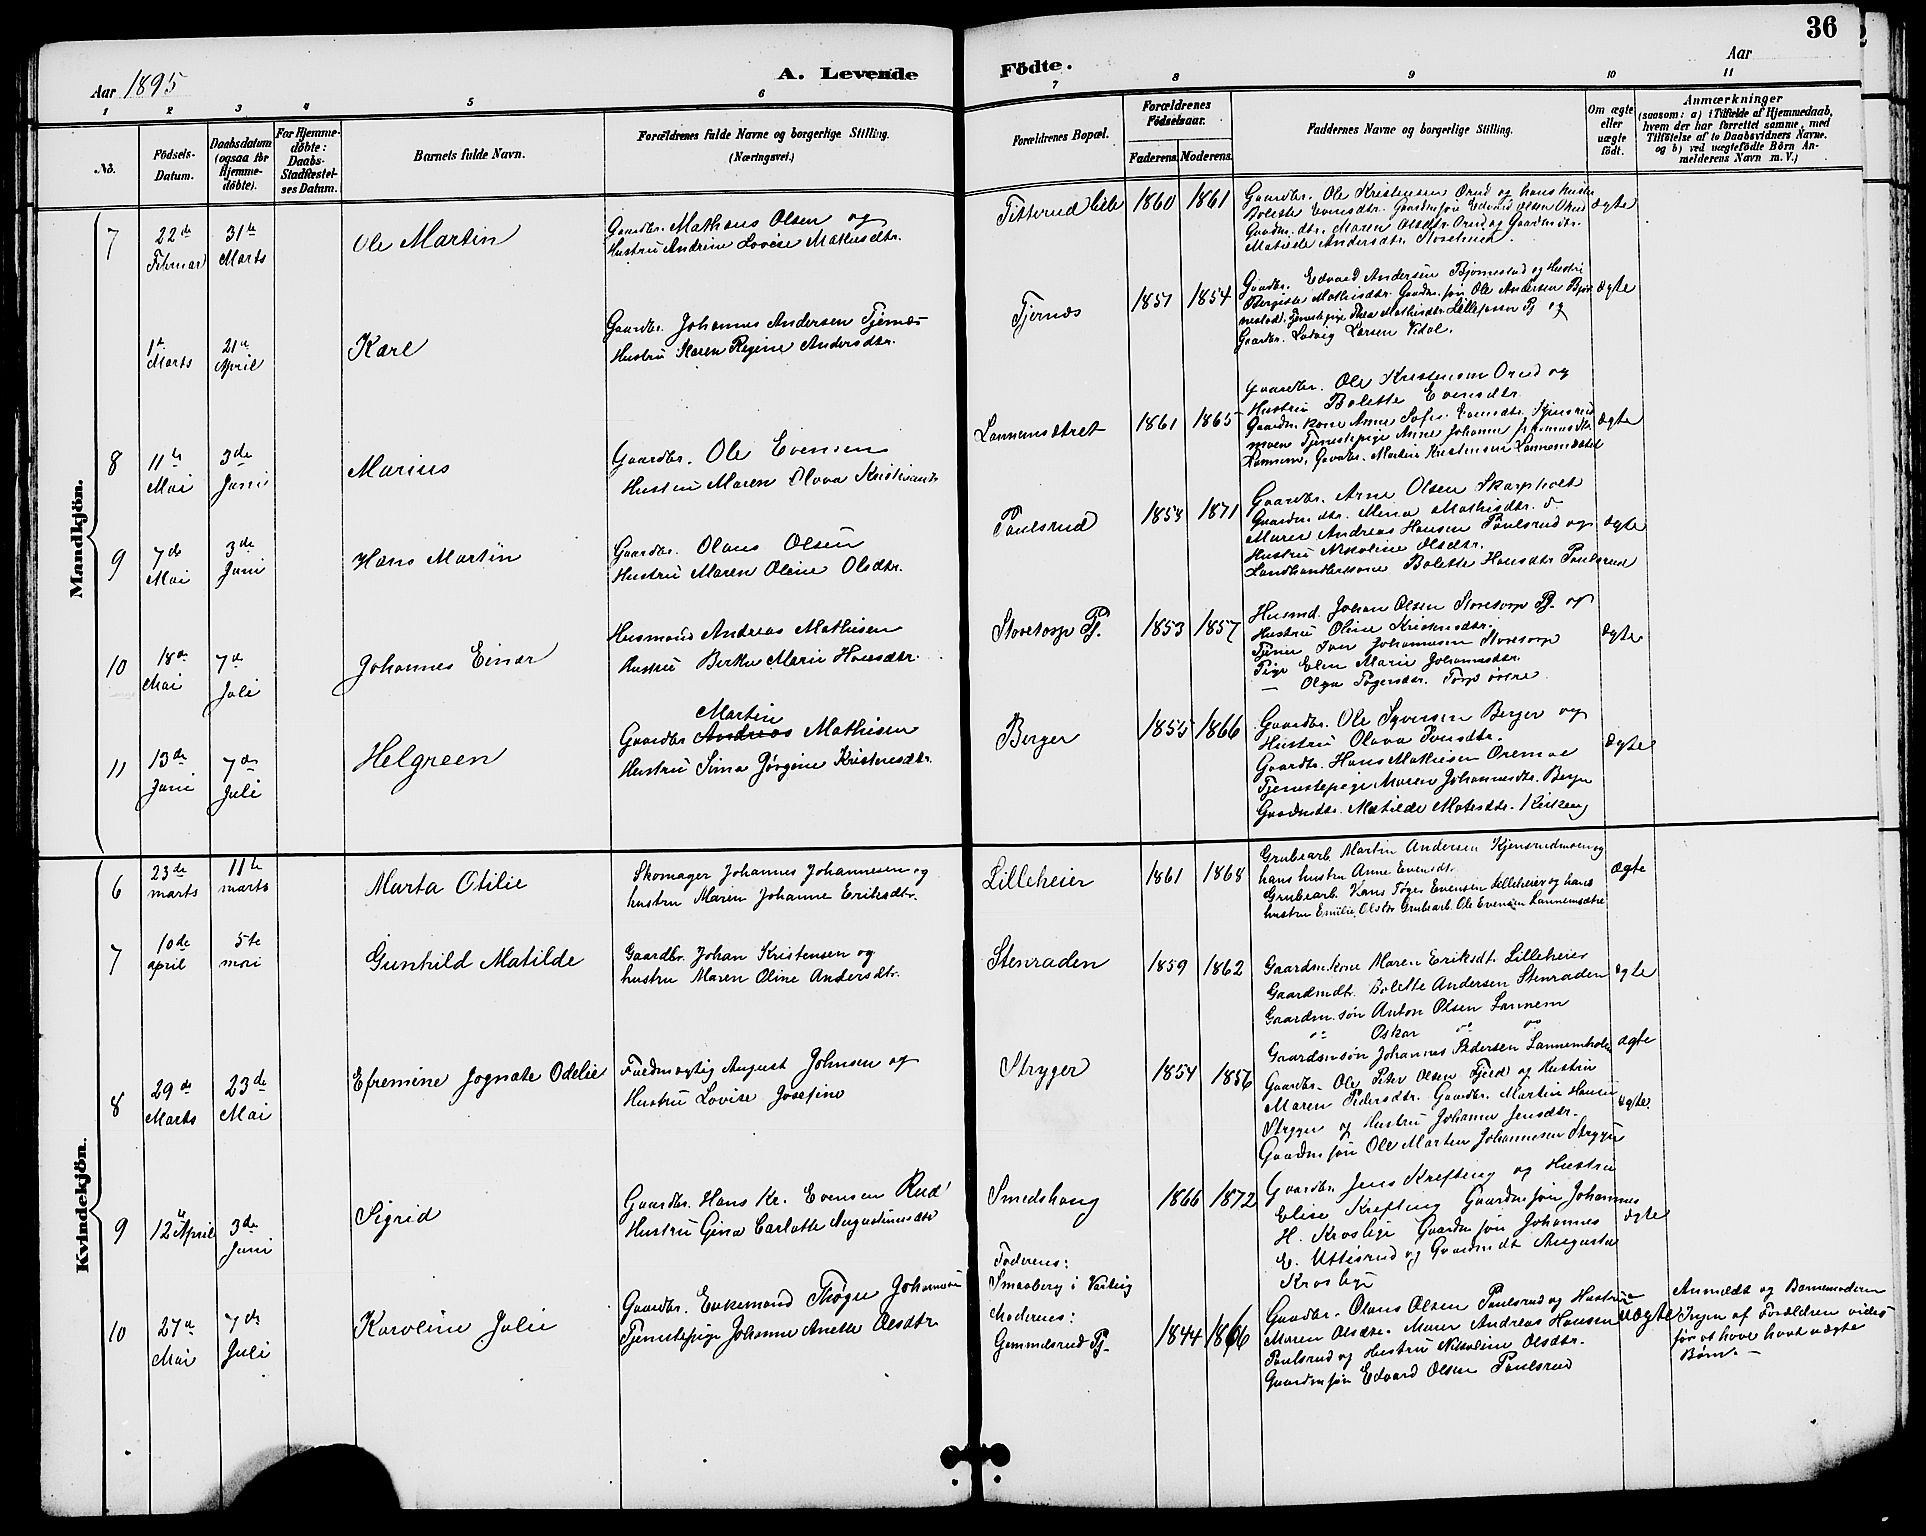 36
Aar 1895
A. Levende
Födte.
Aar
1 2 3 4 5 6 7 8 9 10 11
No.
Födsels-
Datum.
Daabsdatum
(ogsaa for
Hjemme-
døbte).
For Hjemme-
døbte:
Daabs-
Stadfæstel-
ses Datum.
Barnets fulde Navn.
Forældrenes fulde Navne og borgerlige Stilling.
(Næringsvei.)
Forældrenes Bopæl.
Forældrenes
Födselsaar.
Faderens. Moderens.
Faddernes Navne og borgerlige Stilling.
Om ægte
eller
uægte
født.
Anmærkninger
(saasom: a) i Tilfælde af Hjemmedaab,
hvem der har forrettet samme, med
Tilføielse af to Daabsvidners Navne,
og b) ved uægtefødte Börn An-
melderens Navn m. V.)
Mandkjön.
7
22de
Februar
31te
Marts
Ole Martin
Gaardbr. Mathæus Olsen og
Hustru Andrine Lovise Mathisdtr.
Titterud lille
1860 1861
Gaardbr. Ole Kristensen Ørud og hans hustru
Bolette Evensdtr. Gaardm. søn Edvard Olsen Ørud
Gaardm. dtr. Maren Olsdtr. Ørud og Gaardmdtr.
Matilde Andersdtr.
ægte
1te
Marts
21de
April
Karl
Gaardbr. Johannes Andersen Tjernæs
Hustru Karen Regine Andersdtr.
Tjernæs
1851 1854
Gaardbr. Edvard Andersen Bjørnestad og Hustru
Mathisdtr. Gaardm. søn Ole Andersen Bjør-
nestad. Tjenestepige Thea Mathisdtr. Pj og
Gaardbr. Ludvig Larsen Vidal.
ægte
8
11te
Mai
3de
Juni
Marius
Gaardbr. Ole Evensen
Hustru Maren Olava Kristiansdtr
Lannemsætret
1861 1865
Gaardbr. Ole Kristensen Ørud og
Hustru Bolette Evensdtr.
Gaardm. kone Anne Sofie Evensdtr. Kjensrud
moen Tjenestepige Anne Johanne Johannesdtr
Lannem, Gaardbr. Martin Kristensen Lannemsætret
ægte
9
7de
Mai
3de
Juni
Hans Martin
Gaardbr. Olaus Olsen
Hustru Maren Oline Olsdtr.
Paulsrud
1858 1871
Gaardbr. Arne Olsen Skarpholt
Gaardm. dtr. Mina Mathisdtr.
Murer Andreas Hansen Paulsrud og
Hustru Nikoline Olsdtr.
Landhandlerkone Bolette Hansdtr Paulsrud
ægte
10
18de
Mai
7de
Juli
Johannes Einar
Husmand Andreas Mathisen
Hustru Berthe Marie Hansdtr.
Storetorp Pj.
1853 1857
Husmd. Johan Olsen Storetorp Pj. og
Hustru Oline Kristensdtr.
Tjener Iver Johannesen Storetorp
Pige Elen Marie Johannesdtr.
— Olga Tøgersdtr. Torp østre
ægte
11
13de
Juni
7de
Juli
Helgreen
Martin
Gaardbr Andreas Mathisen
Hustru Sina Jørgine Kristensdtr.
Berger
1855 1866
Gaardbr. Ole Syversen Berger og
Hustru Olava Iversdtr.
Gaardbr. Hans Mathisen Oremoe
Tjenestepige Maren Johannesdtr. Berger
Gaardmdtr. Matilde Matisdtr. Kirkeng
ægte
Kvindekjön.
6
23de
marts
11te
marts
Marta Otilie
Skomager Johannes Johannesen og
hustru Maren Johanne Eriksdtr.
Lilleheier
1861 1868
Grubearb. Martin Andersen Kjensrudmoen og
hans hustru Anne Evensdt.
Grubearb. Hans Tøger Evensen Lilleheier og hans
hustru Emilie Olsdtr. Grubearb. Ole Evensen Lannemsætre
ægte
7
10de
april
5te
mai
Gunhild Matilde
Gaardbr. Johan Kristensen og
hustru Maren Oline Andersdtr.
Stenraden
1859 1862
Gaardm. kone Maren Eriksdt. Lilleheier
Gaardmdt. Bolette Andersen Stenraden
Gaardm. søn Anton Olsen Lannem
" Oskar " "
Gaardmsøn Johannes Pedersen Lannemholen
ægte
ægte
8
29de
Marts
23de
Mai
Efremine Jognate Odelie
Fuldmægtig August Johnsen og
Hustru Lovise Josefine
Stryger
1854 1856
Gaardbr. Ole Peter Olsen Fjeld og Hustru
Maren Pedersdtr. Gaardbr. Martin Hansen
Stryger og Hustru Johanne Jensdtr.
Gaardm søn Ole Martin Johannesen Stryger
ægte
9
12te April
3de
Juni
Sigrid
Gaardbr. Hans Kr. Evensen Rud
Hustru Gina Carlotte Augustinusdtr
Smedshaug
1866 1872
Gaardbr. Jens Krefting og Hustru
Elise Krefting Gaardm søn Johannes
H. Krosbye Gaardm søn Johannes
E. Uttisrud og Gaardmdt Augusta
Krosbye
ægte
10
27de
Mai
7de
Juli
Karoline Julie
Gaardbr. Enkemand Thøger Johannesen
Tjenestepige Johanne Anette Olsdtr
Faderens:
Smaaberg i Varteig
Moderens:
Gemmelsrud Pj.
1844 1866
Gaardbr. Olaus Olsen Paulsrud og Hustru
Maren Olsdtr. Murer Andreas Hansen
Paulsrud og Hustru Nikoline Olsdtr.
Gaardm søn Edvard Olsen Paulsrud
uægte
Anmeldt og Barnemoderen
Ingen af Forældrene vides
før at have havt uægte
Børn. —